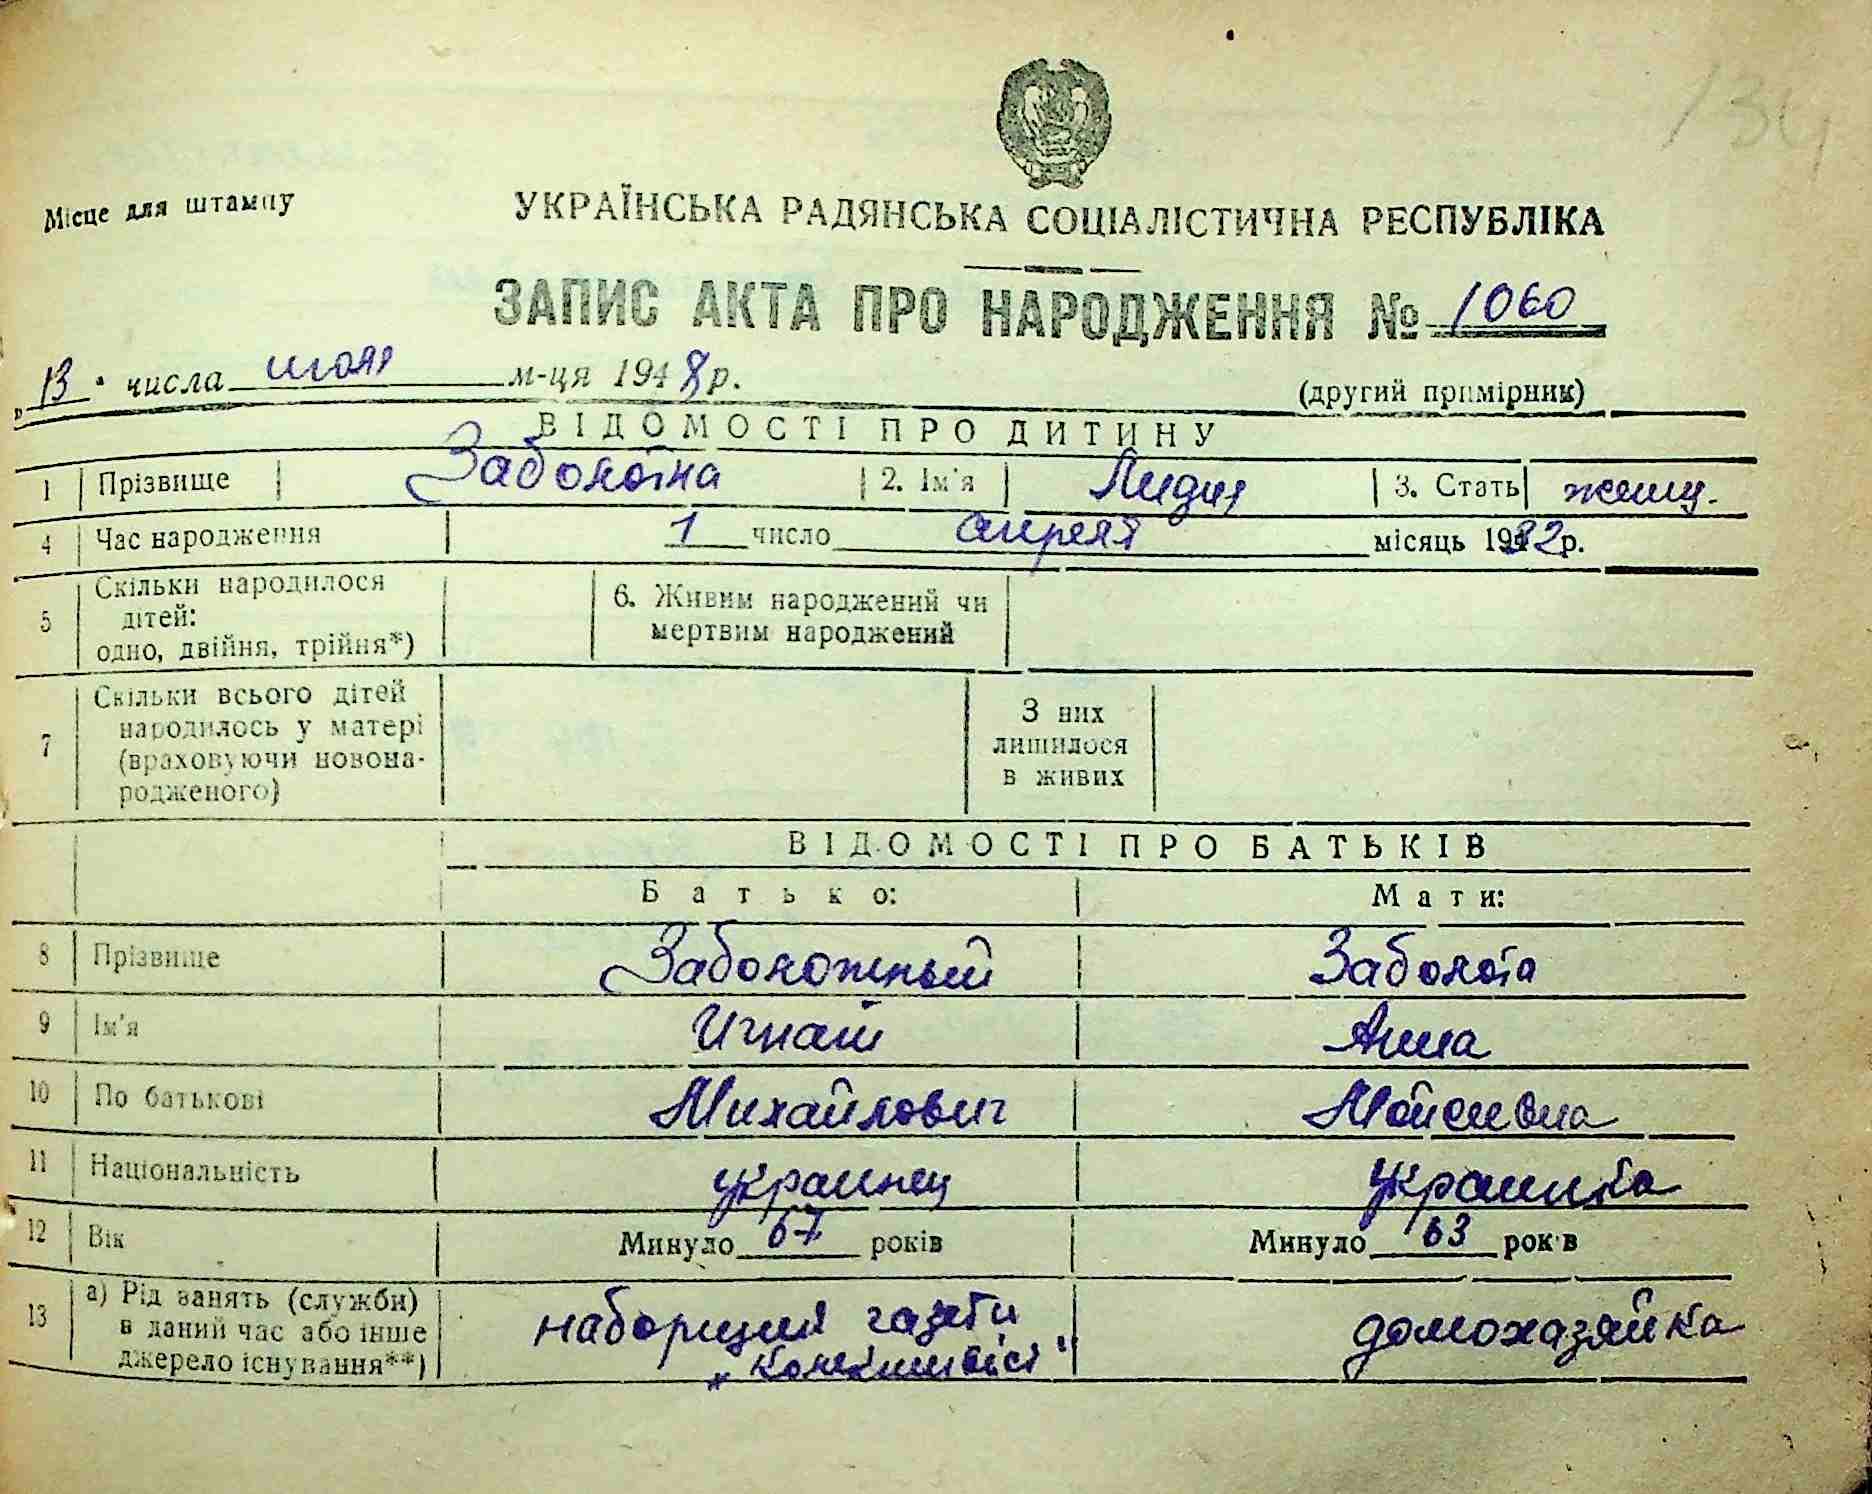 134
Місце для штампу
УКРАЇНСЬКА РАДЯНСЬКА СОЦІАЛІСТИЧНА РЕСПУБЛІКА
ЗАПИС АКТА ПРО НАРОДЖЕННЯ № 1060
„13" числа июля м-ця 1948 р.
(другий примірник)
ВІДОМОСТІ ПРО ДИТИНУ
1 Прізвище Заболотна 2. Ім'я Лидия 3. Стать женщ.
4 Час народження 1 число апреля місяць 1932 р.
5 Скільки народилося дітей: одно, двійня, трійня*)
6. Живим народжений чи мертвим народжений
7 Скільки всього дітей народилось у матері (враховуючи новонародженого)
З них лишилося в живих
ВІДОМОСТІ ПРО БАТЬКІВ
Батько: Мати:
8 Прізвище Заболотный Заболота
9 Ім'я Игнат Анна
10 По батькові Михайлович Мойсеевна
11 Національність украинец украинка
12 Вік Минуло 67 років Минуло 63 років
13 а) Рід занять (служби) в даний час або інше джерело існування**)
наборщик газети
домохазяйка